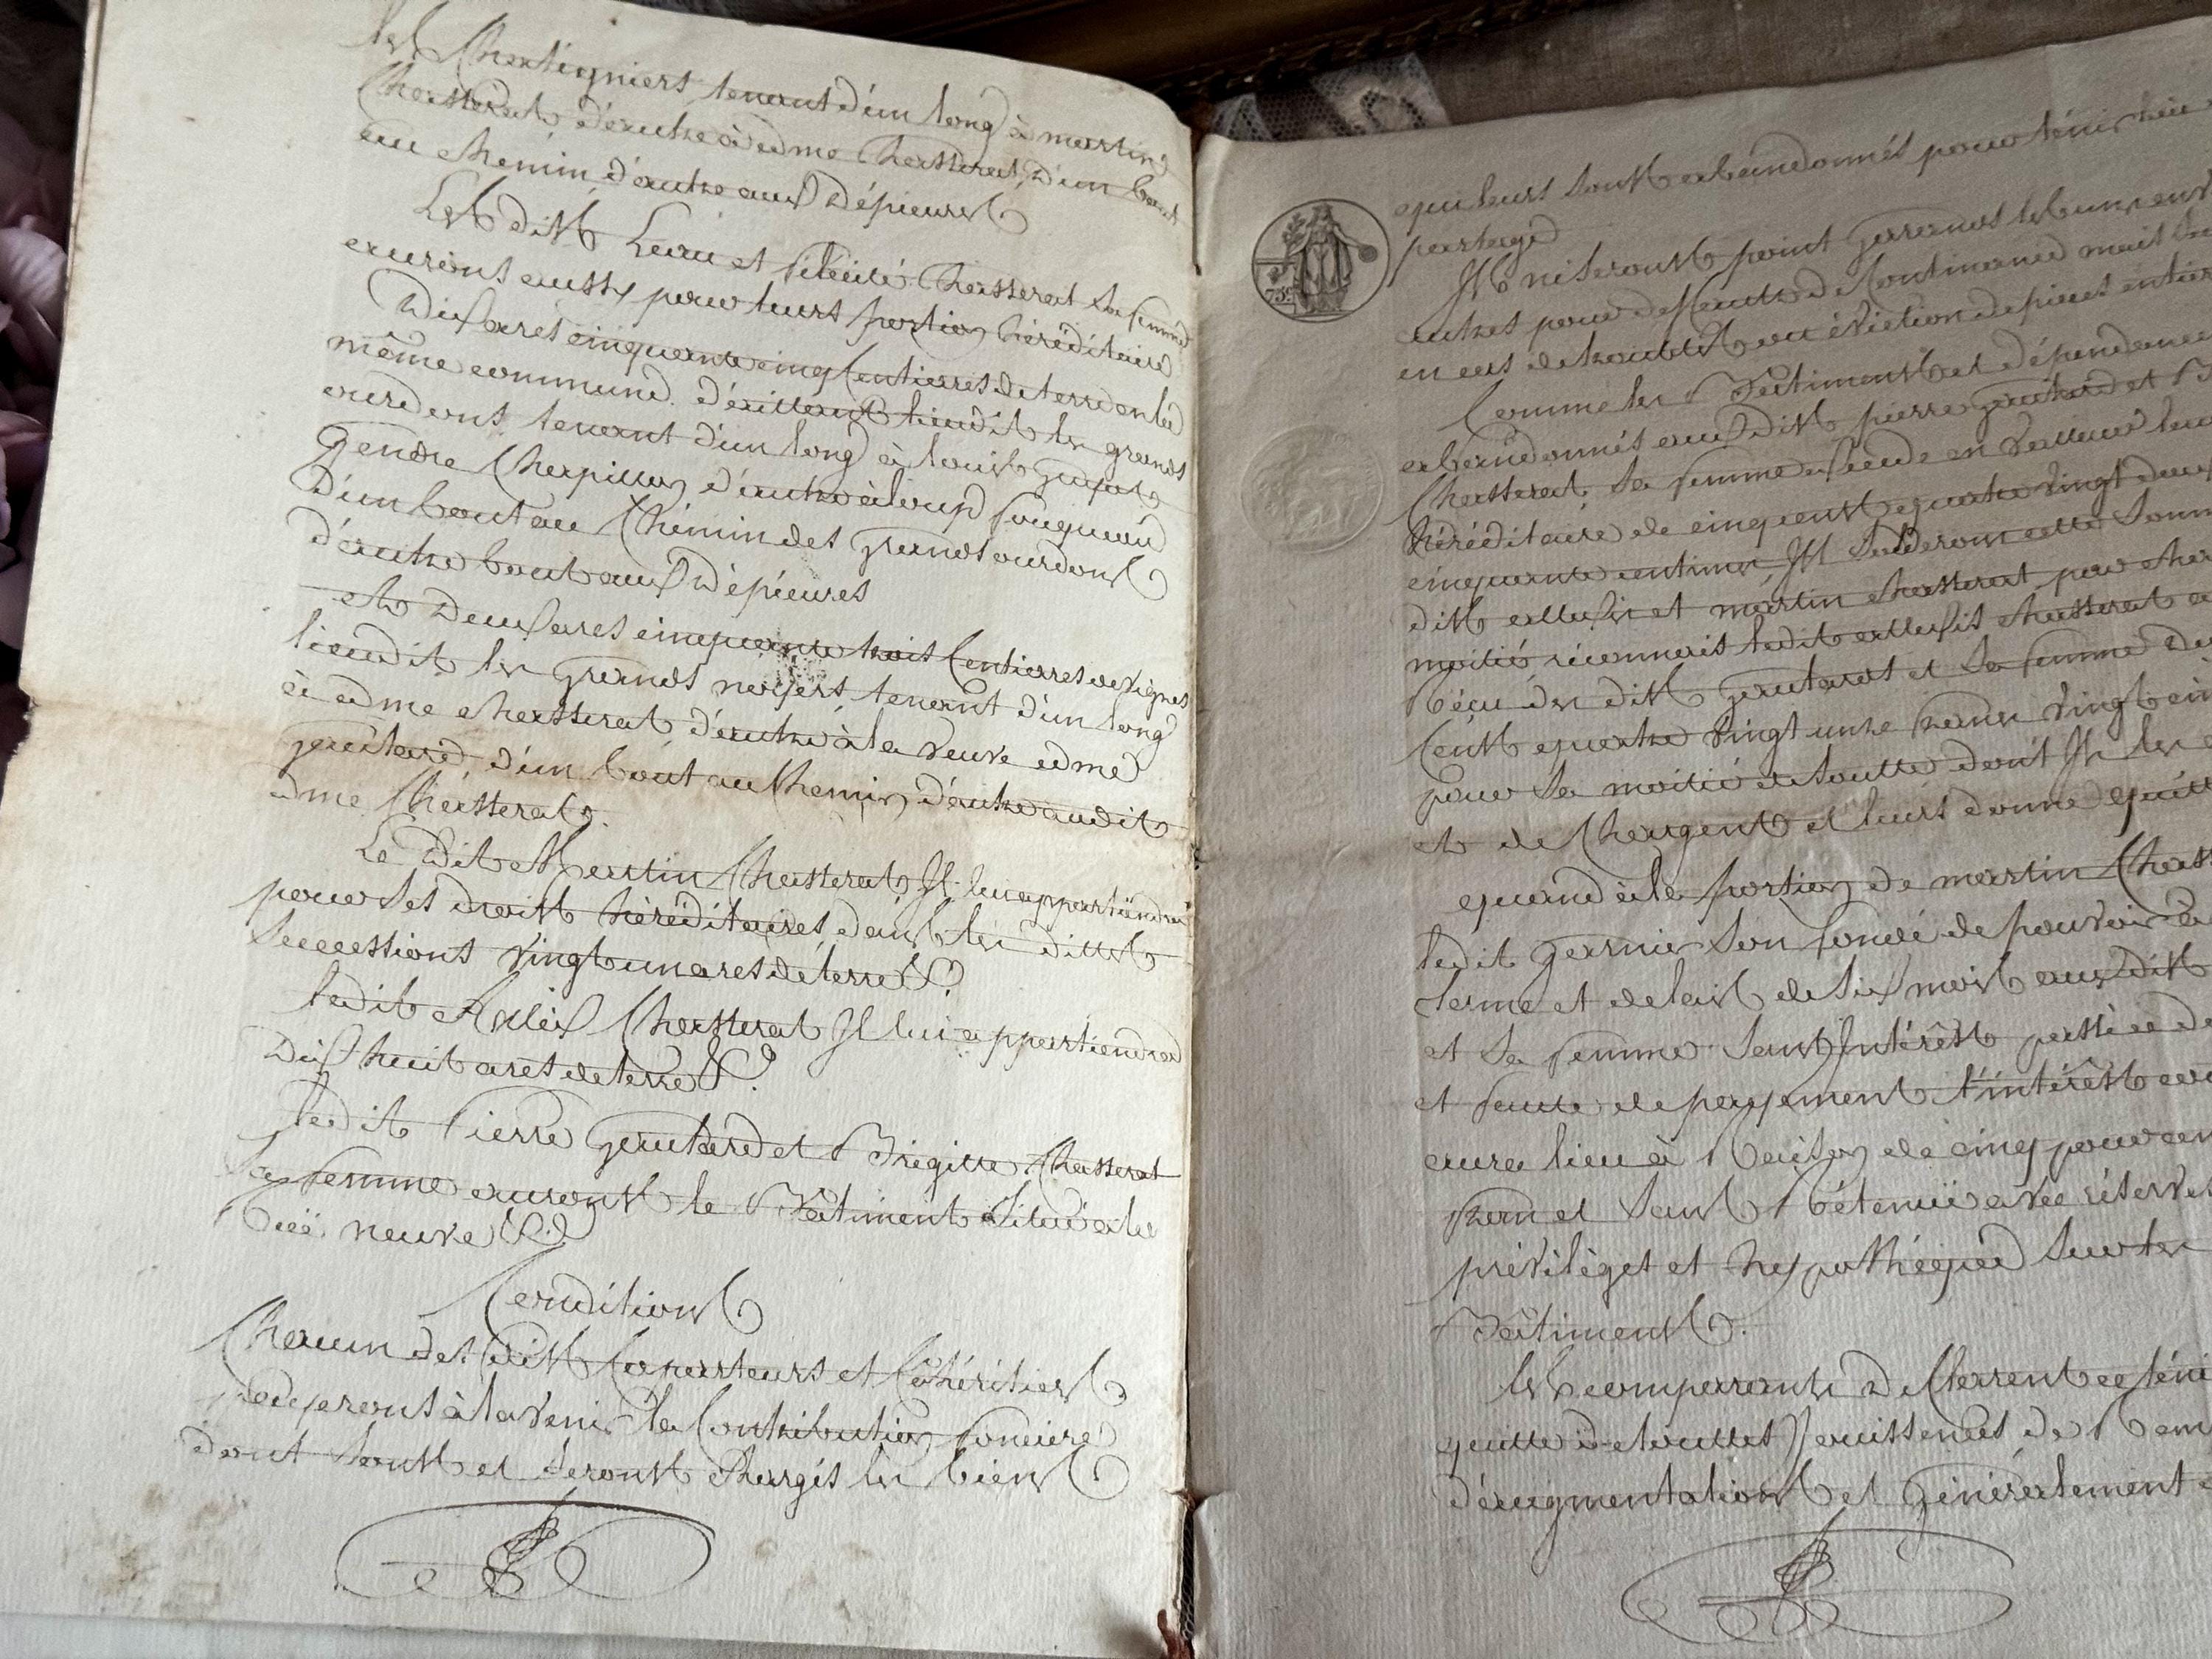 les Chatigniers tenant d'un long à martin
Chasserat, d'autre à edme Chasserat, d'un bout
au chemin, d'autre aux Dépieurs
Les dits Leau et félicité Chasserat sa femme
aurons aussy pour leurs portion héréditaire
Dix ares cinquante cinq Centiarres de terre en la
même commune d' lieudit les grands
ourdons tenant d'un long à louis
gendre Chapillon d'autre à loup fouqueau
D'un bout au Chémin des grands ourdons
d'autre bout aux Dépieures
et Deux ares cinquante trois Centiarres de vignes
lieudit les Grands noyers, tenant d'un long
à edme chasserat d'autre à la veuve edme
gautard, d'un bout au Chemin, d'autre audit
edme Chasserat.
Le Dit Martin Chasserat Il lui appartiendra
pour ses droits héréditaires, dans les dittes
Successions vingt un ares de terre &.
ledit Alexis Chasserat Il lui appartiendra
Dix huit ares de terre &.
ledit Pierre Gautard et Brigitte Chasserat
Sa femme auront le Batiment Situé à la
Ruë neuve &.
Conditions
Chacun des dits Coparteurs et Cohéritiers
payeront à lavenir la Contribution fonciere
dont sont et seront Chargés les biens
qui leurs sont abandonnés pour ténir lieu
partage
75c.
Ils ne seront point garrands les uns envers
autres pour deffautte de Continance mais
en cas de troubles ou éviction de pieces entieres
Comme les Batiments et dépendance
abandonnés aux dits pierre gautard et
Chasserat, sa femme excede en valleur leur
héréditaire de cinq cents quatre vingt deux
cinquante centimes, Ils solderont cette somme
dits allexis et martin chasserat par
moitié réconnais ledit allexis chasserat
Réçu des dits gautard et sa femme
Cents quatre vingt unze francs vingt cinq
pour sa moitié de soutte dont Il les
et de Chargent et leurs donne quitt
quand à la portion de martin Chass
ledit garnier son fondé de pouvoir
terme et delais de six mois aux dits
et sa femme sans Intérêts passé
et faute de payement l'intérêts
aura lieu à Raison de cinq pour cent
par an et sans Réténuë avec réserves
priviléges et hypothéque sur les
Batiments.
les comparants Declarent
quitte de touttes Jouissences de
d'augmentations et généralement